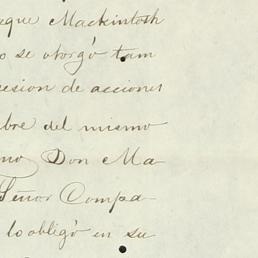 que Mackintosh
o se otorgó tam
cesion de acciones
bre del mismo
no, Don Ma-
Señor Compa-
lo obligó en su